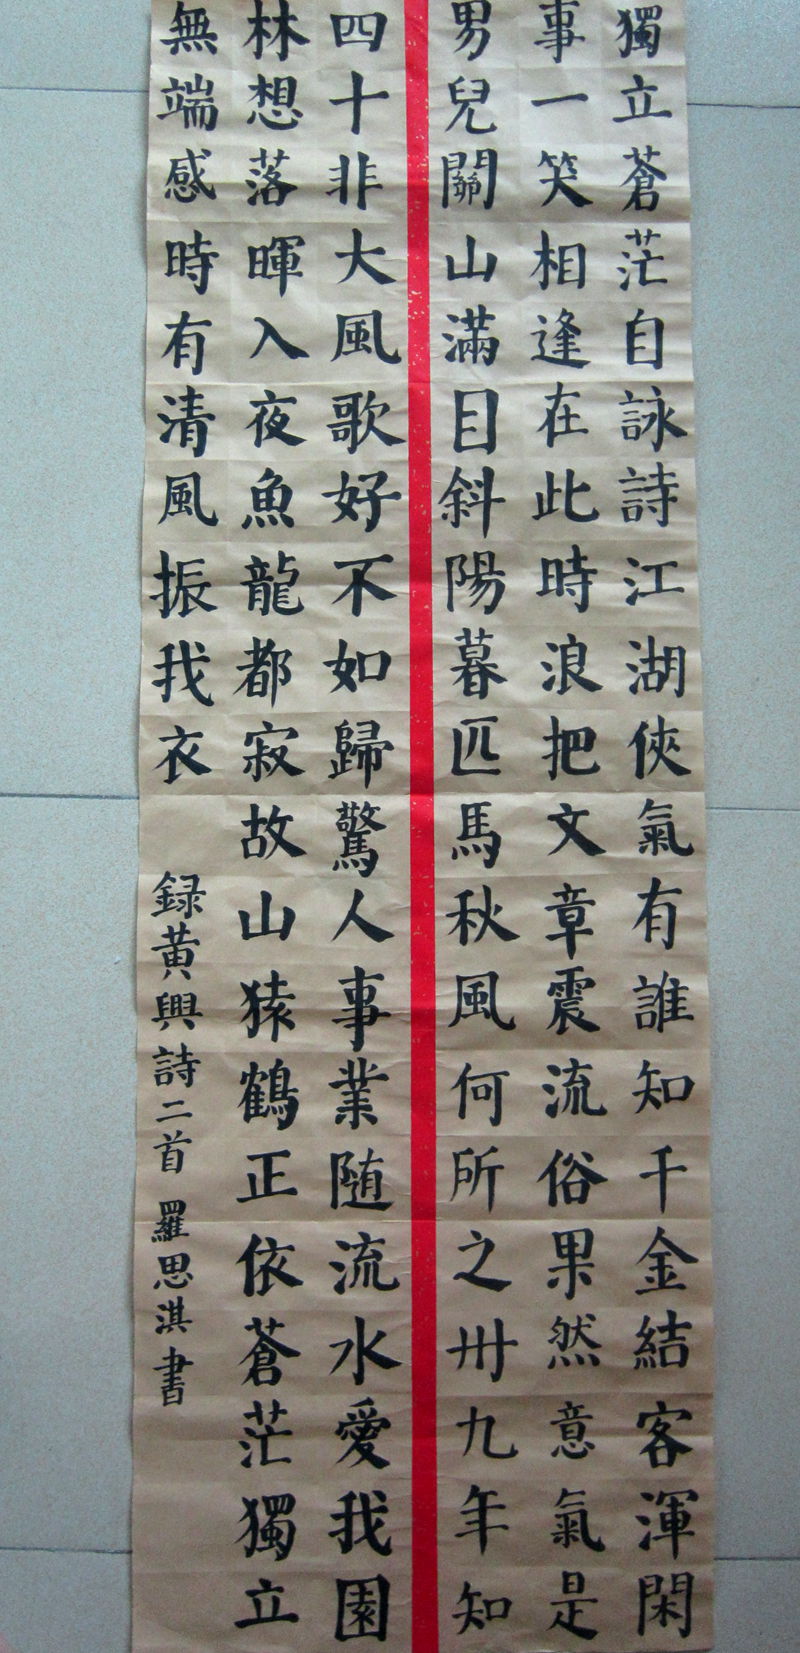 獨立蒼茫自詠詩江湖俠氣有誰知千金結客渾閑
事一笑相逢在此時浪把文章震流俗果然意氣是
男兒關山滿目斜陽暮匹馬秋風何所之卅九年知
四十非大風歌好不如歸驚人事業随流水愛我園
林想落暉入夜魚龍都寂故山猿鶴正依蒼茫獨立
無端感時有清風振我衣
録黄興詩二首 羅思淇書